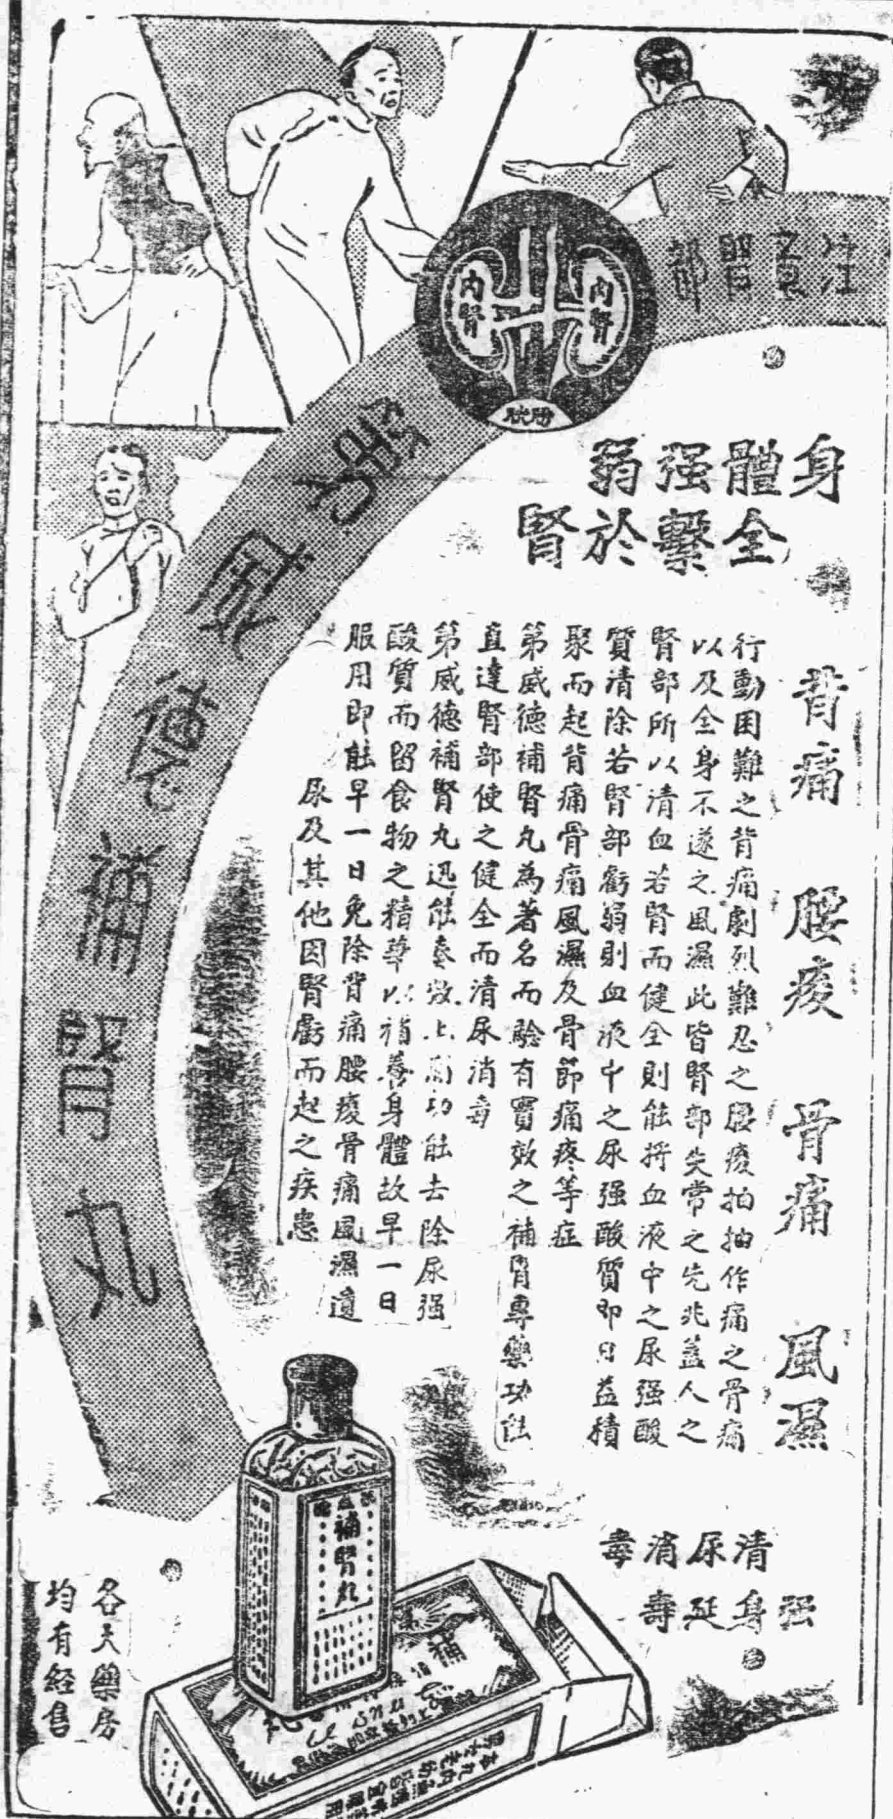 注意腎部
內腎
內腎
膀胱
第威德補腎丸
身體强弱
全繫於腎
背痛 腰痠 骨痛 風濕
行動困難之背痛劇烈難忍之腰痠拍抽作痛之骨痛
以及全身不遂之風濕此皆腎部失常之先兆蓋人之
腎部所以清血若腎而健全則能將血液中之尿强酸
質清除若腎部虧弱則血液中之尿强酸質即日益積
聚而起背痛骨痛風濕及骨節痛疼等症
第威德補腎丸為著名而驗有實效之補腎專藥功能
直達腎部使之健全而清尿消毒
第威德補腎丸迅能奏效上列功能去除尿强
酸質而留食物之精華以補養身體故早一日
服用即能早一日免除背痛腰痠骨痛風濕遺
尿及其他因腎虧而起之疾患
清尿消毒
强身延壽
補腎丸
補
各大藥房
均有經售